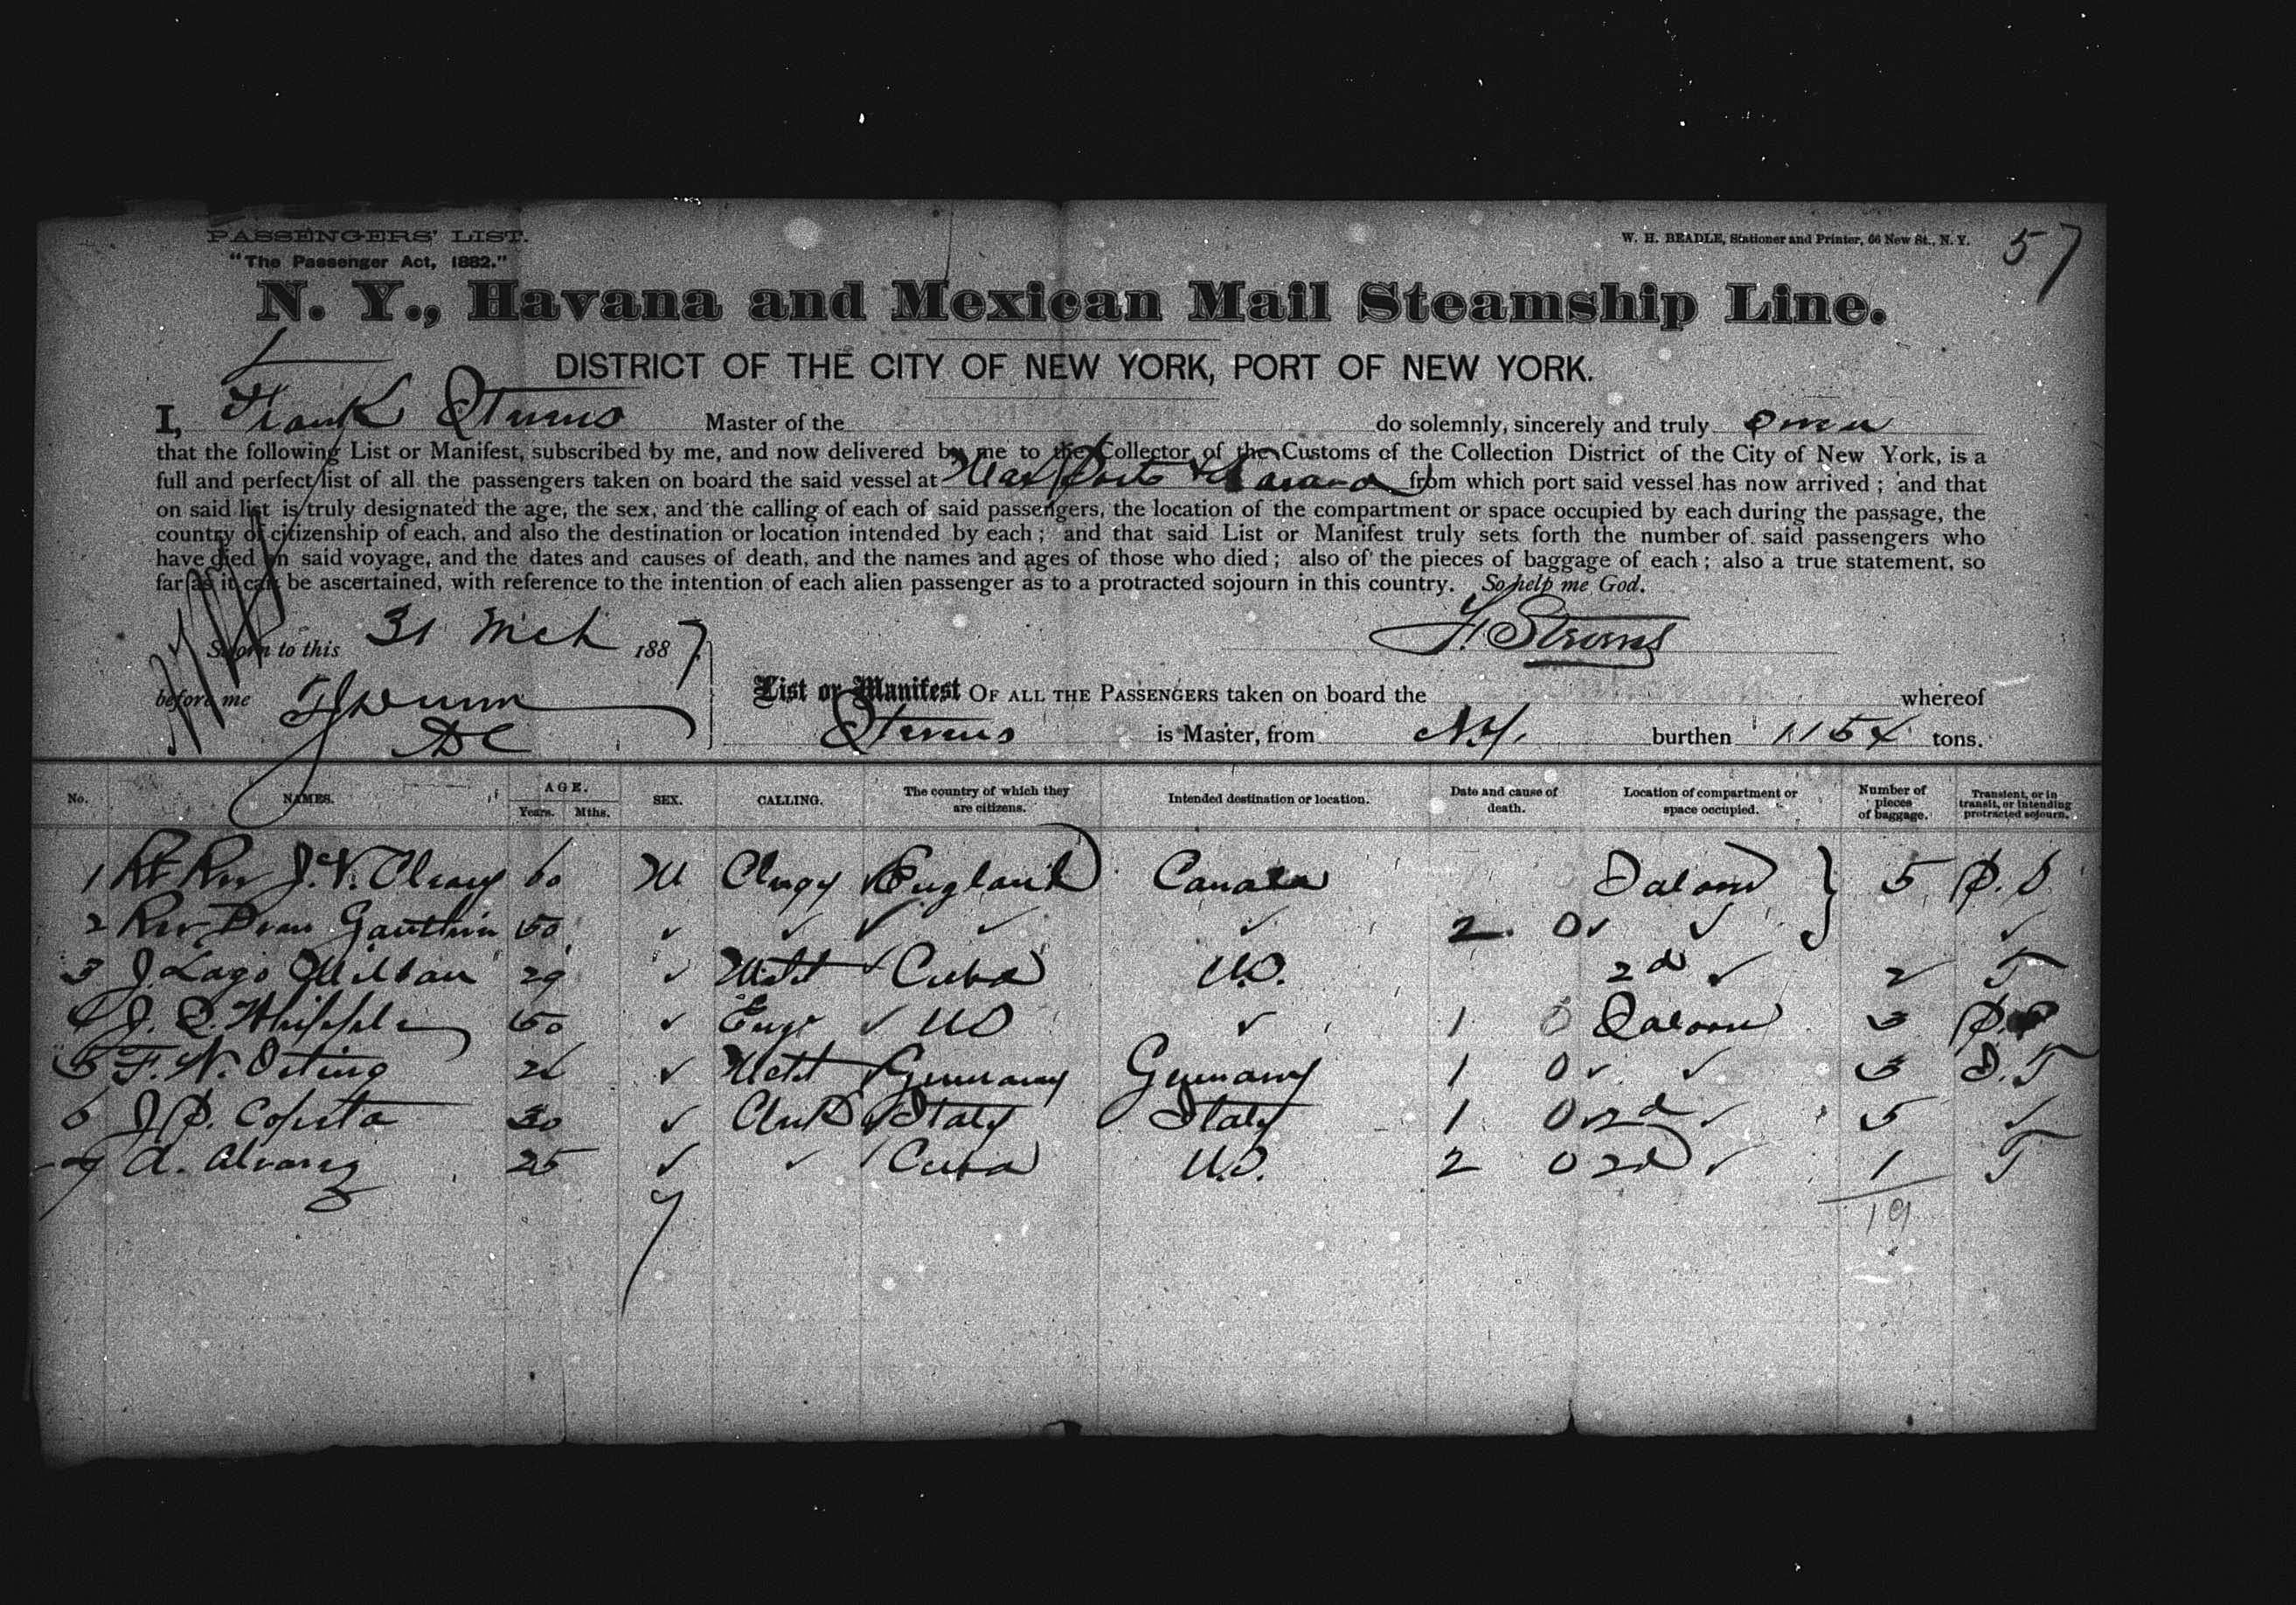 PASSENGERS' LIST.
W. H. BEADLE, Stationer and Printer, 66 New St., N. Y.
57
"The Passenger Act, 1882."
N. Y., Havana and Mexican Mail Steamship Line.
DISTRICT OF THE CITY OF NEW YORK, PORT OF NEW YORK.
I, Frank Stevens Master of the do solemnly, sincerely and truly swear
that the following List or Manifest, subscribed by me, and now delivered by me to the Collector of the Customs of the Collection District of the City of New York, is a
full and perfect list of all the passengers taken on board the said vessel at Mex Ports & Havana from which port said vessel has now arrived; and that
on said list is truly designated the age, the sex, and the calling of each of said passengers, the location of the compartment or space occupied by each during the passage, the
country of citizenship of each, and also the destination or location intended by each; and that said List or Manifest truly sets forth the number of said passengers who
have died on said voyage, and the dates and causes of death, and the names and ages of those who died; also of the pieces of baggage of each; also a true statement, so
far as it can be ascertained, with reference to the intention of each alien passenger as to a protracted sojourn in this country. So help me God.
Sworn to this 31 Mch 1887
F. Stevens
before me
DC
List or Manifest OF ALL THE PASSENGERS taken on board the whereof
Stevens is Master, from N.Y. burthen 1154 tons.
No. NAMES. AGE. Years. Mths. SEX. CALLING. The country of which they are citizens. Intended destination or location. Date and cause of death. Location of compartment or space occupied. Number of pieces of baggage. Transient, or in transit, or intending protracted sojourn.
1 Rt Rev J. V. Cleary 60 M Clergy England Canada Saloon 5 P. S.
2 Rev Dean Gauthier 50 ✓ ✓ ✓ ✓ ✓ 2 0 ✓ ✓ ✓
3 J. Lago Millan 29 ✓ Mcht ✓ Cuba U.S. 2d ✓ 2 T
4 J. S. Whipple 50 ✓ Engr ✓ US ✓ 1 0 Saloon 3 P.
5 F. W. Oeting 26 ✓ Mcht ✓ Germany Germany 1 0 ✓ ✓ 3 S. T
6 J. P. Copeta 30 ✓ Clerk ✓ Italy Italy 1 0 2d ✓ 5 ✓
7 A. Alvarez 25 ✓ ✓ ✓ Cuba U.S. 2 0 2d ✓ 1 T
7
19